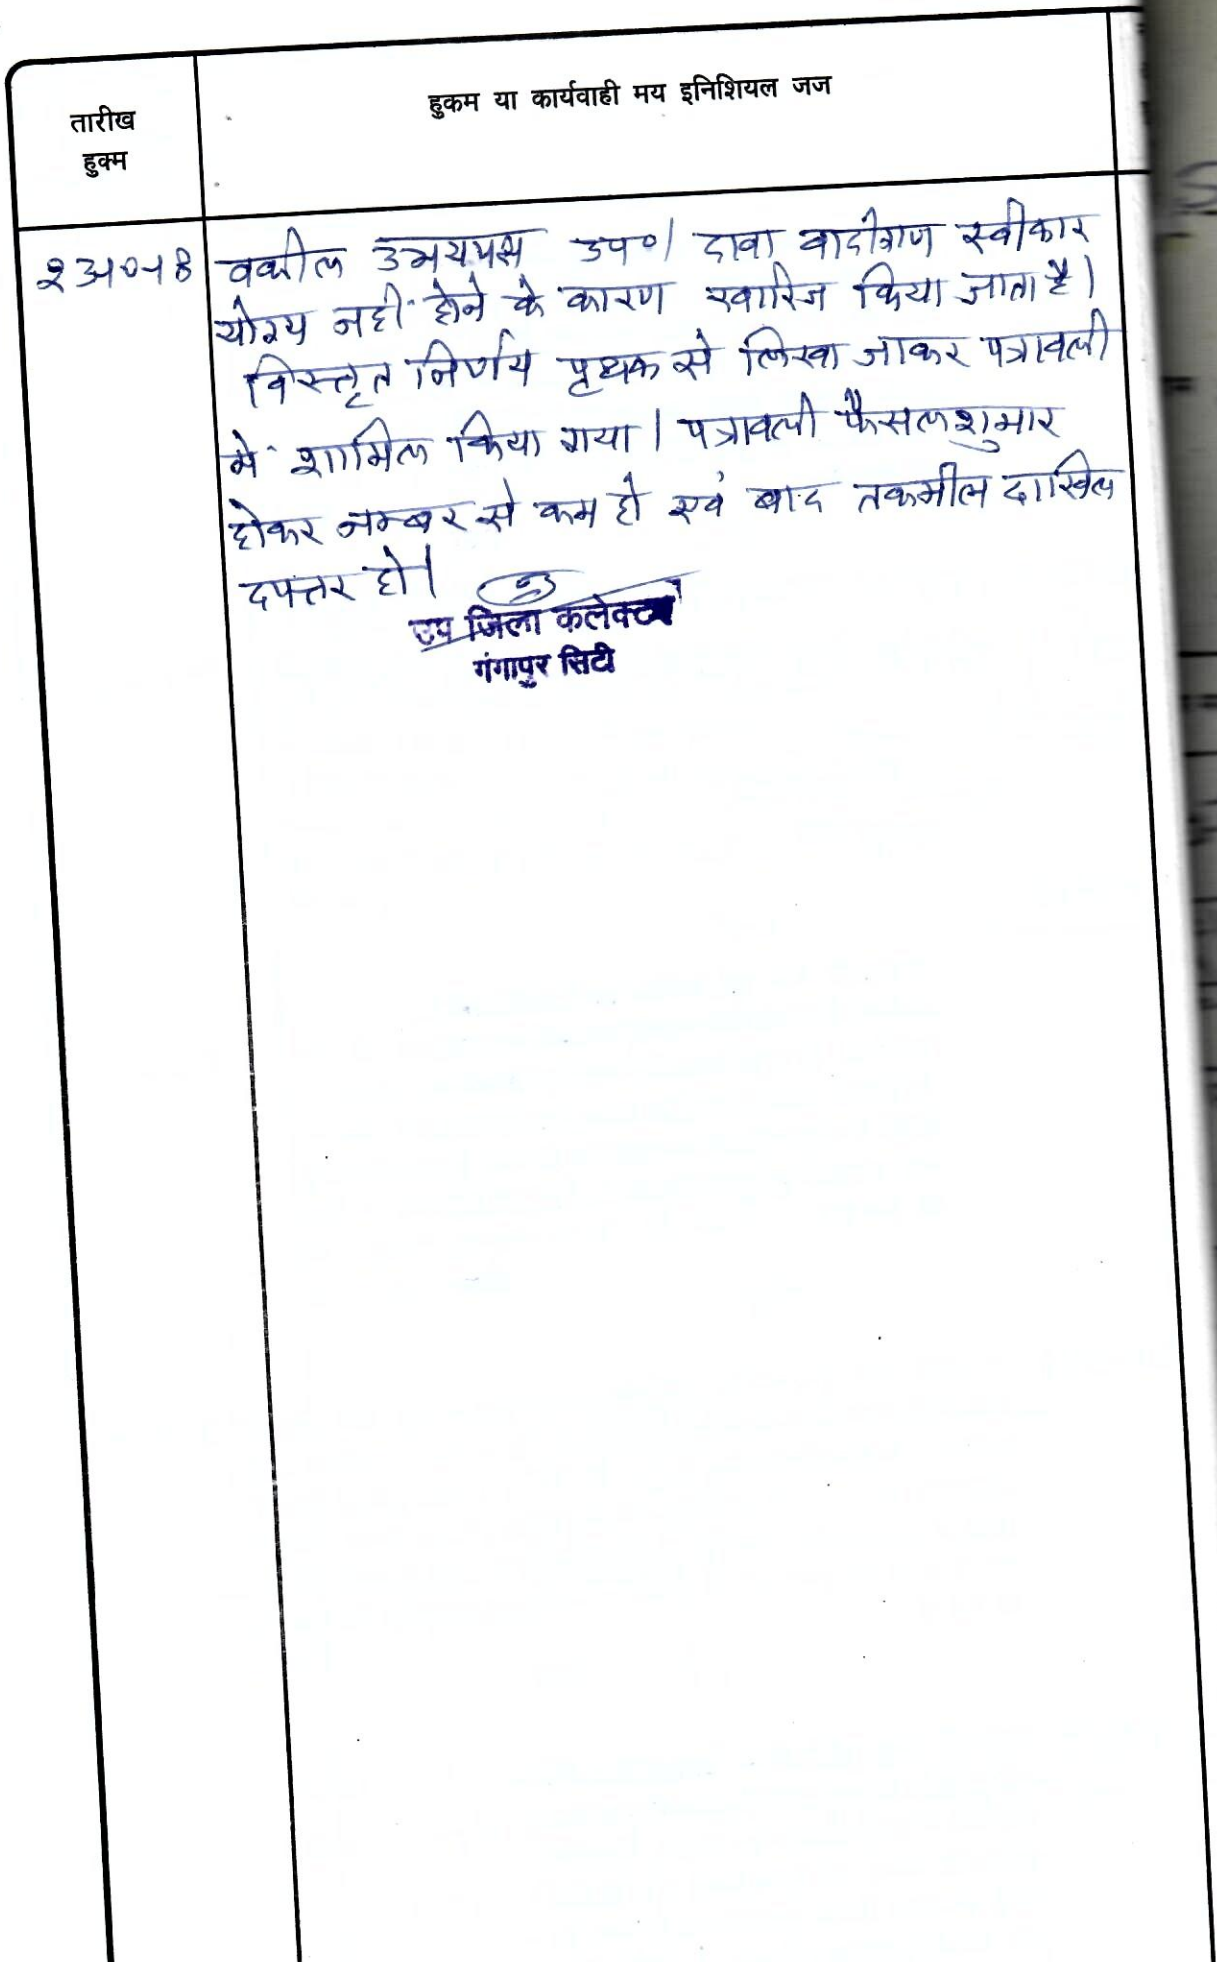 तारीख
हुक्म
हुकम या कार्यवाही मय इनिशियल जज
वकील उभयपक्ष उप०। दावा वादीगण स्वीकार
योग्य नहीं होने के कारण खारिज किया जाता है।
विस्तृत निर्णय पृथक से लिखा जाकर पत्रावली
में शामिल किया गया। पत्रावली फैसल शुमार
होकर नम्बर से कम हो एवं बाद तकमील दाखिल
दफ्तर हो।
उप जिला कलेक्टर
गंगापुर सिटी